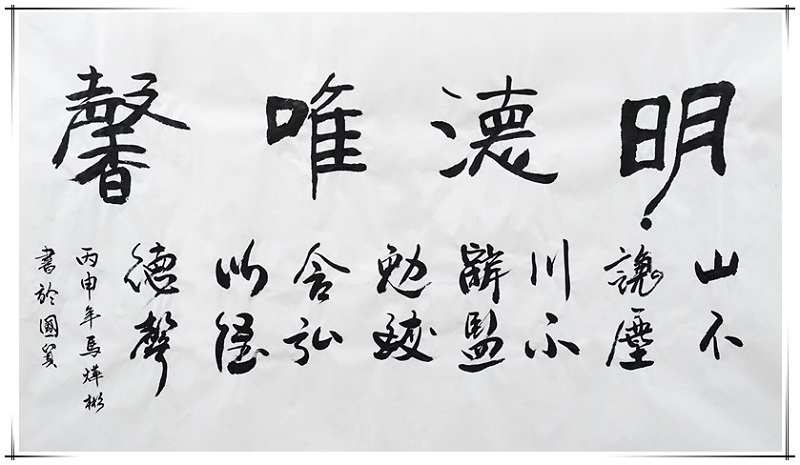 明德唯馨
山不
讓塵
川不
辭監
勉
含弘
以隆
德聲
丙申年馬燁彬
書於國貿